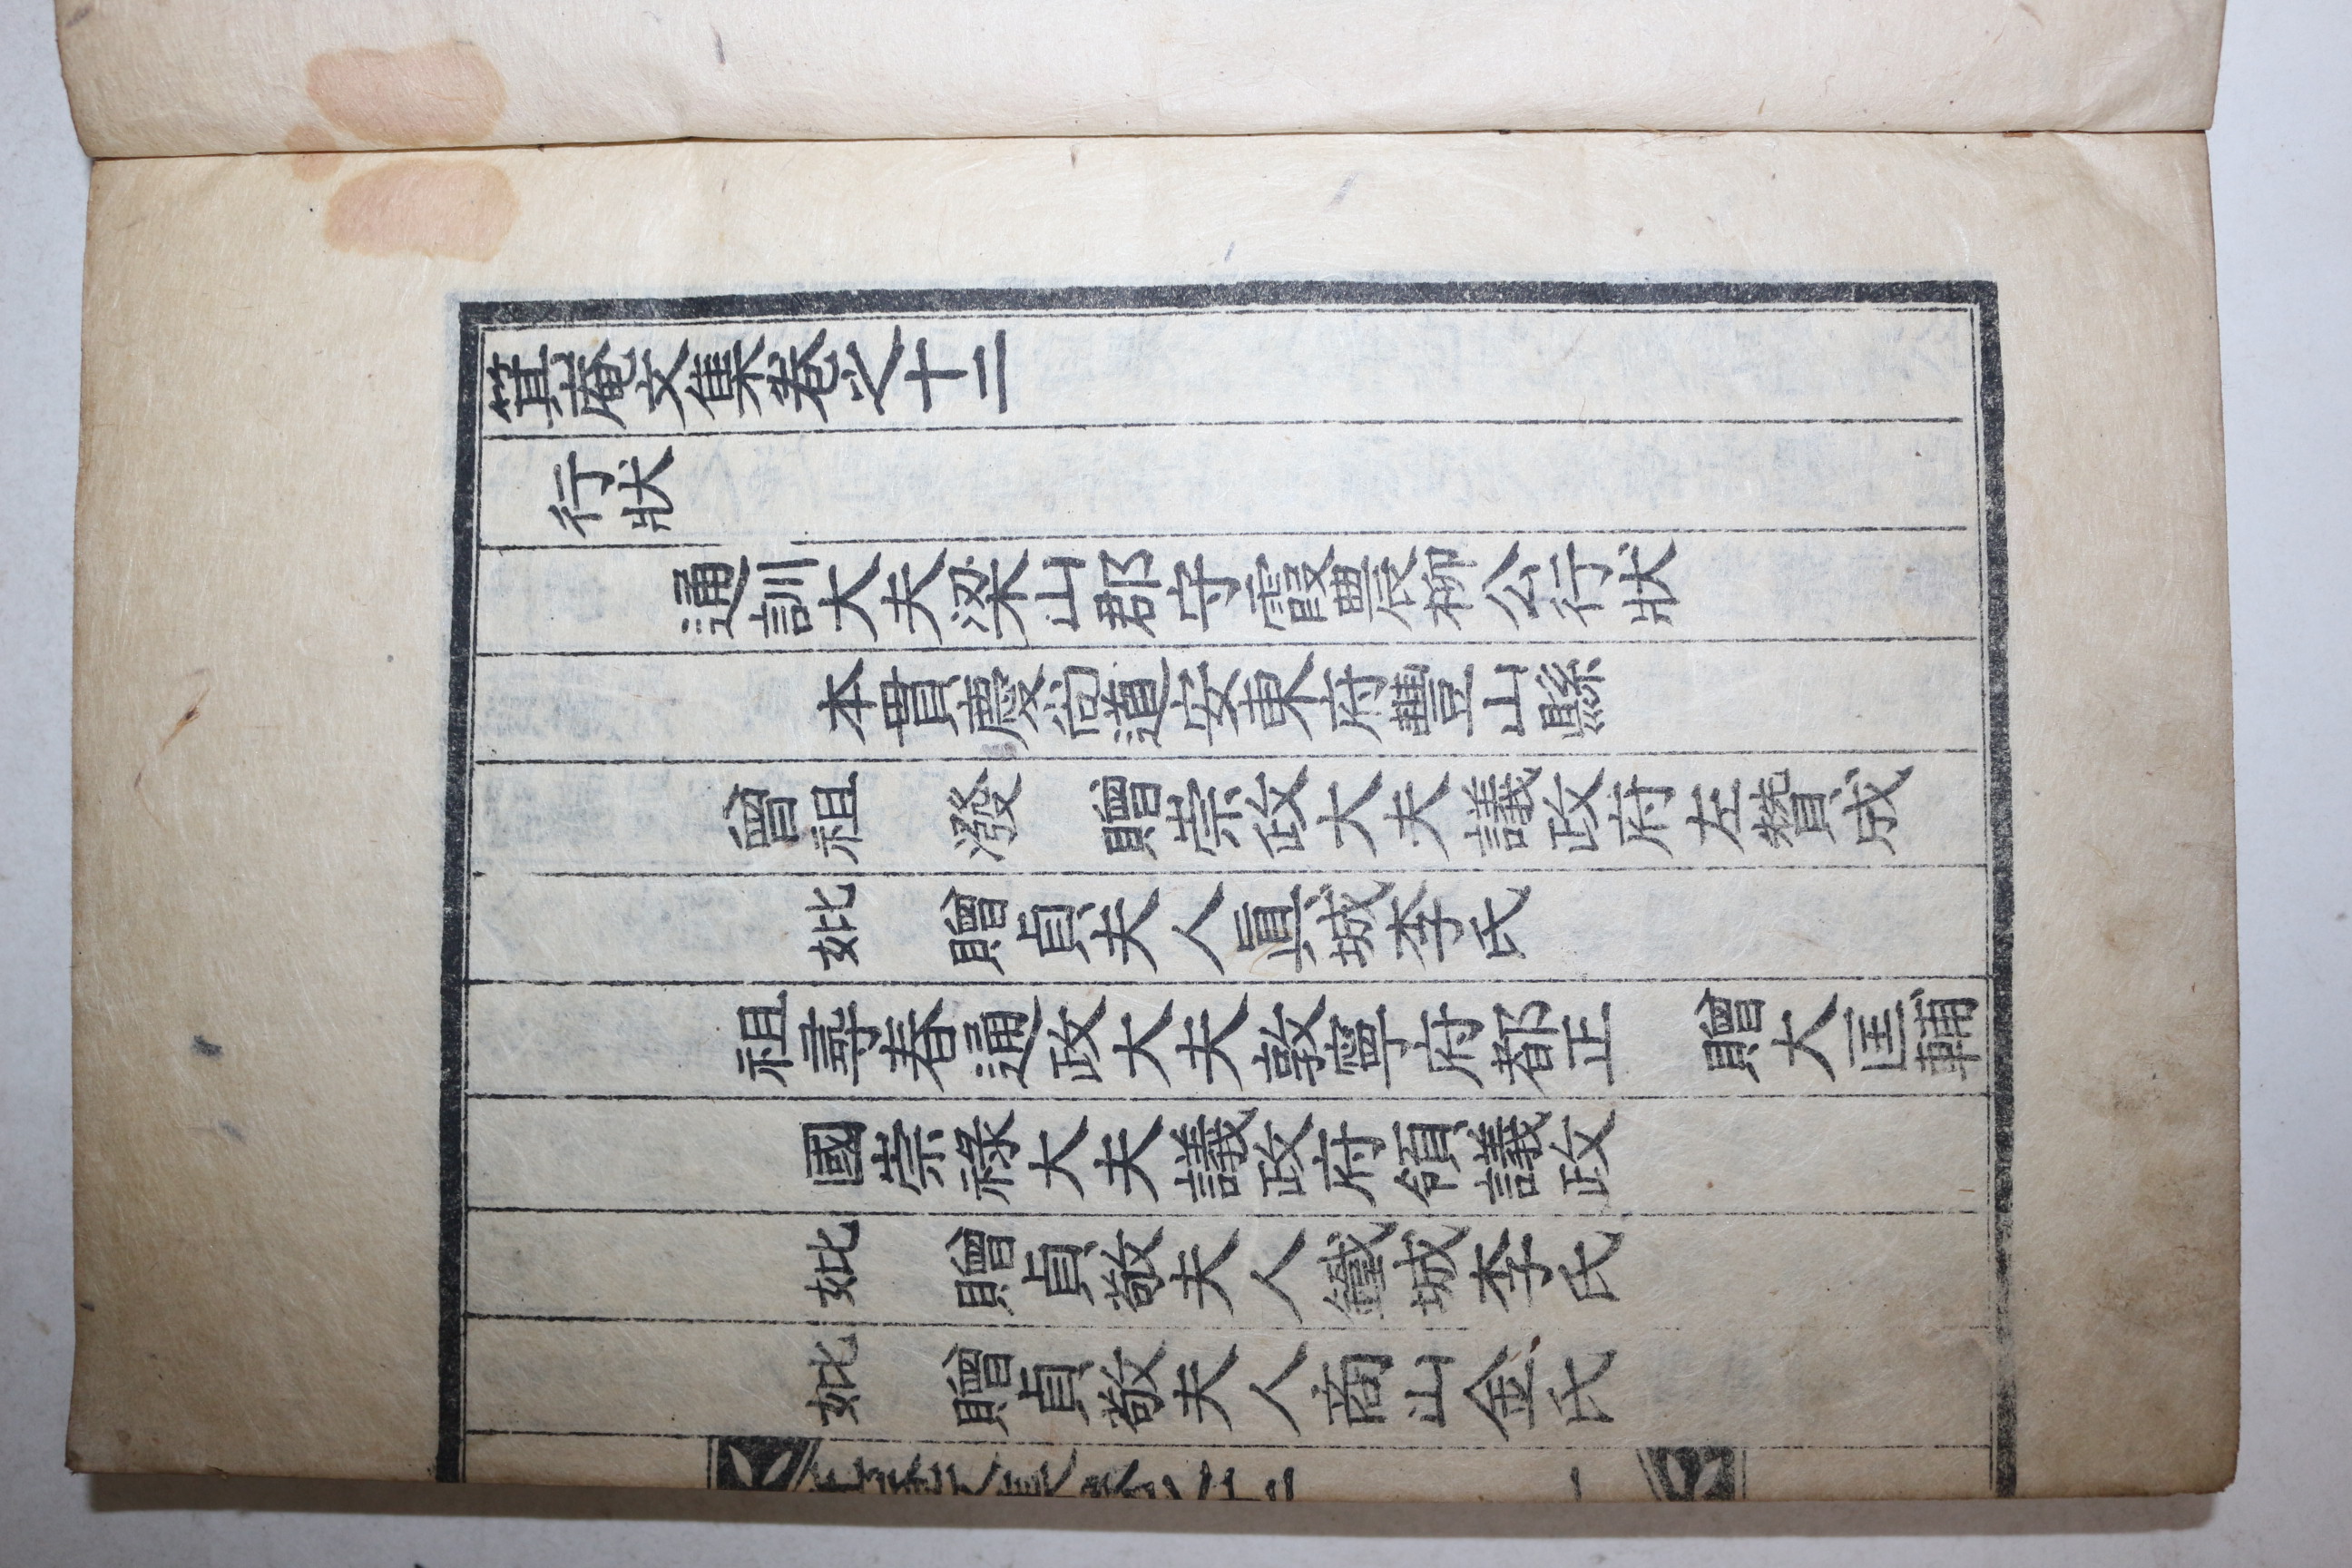 箕庵文集卷之十二
行狀
通訓大夫梁山郡守霞農柳公行狀
本貫慶尙道安東府豐山縣
曾祖 潑 贈崇政大夫議政府左贊成
妣 贈貞夫人眞城李氏
祖㝷春通政大夫敦寧府都正 贈大匡輔
國崇祿大夫議政府領議政
妣 贈貞敬夫人鐵城李氏
妣 贈貞敬夫人商山金氏